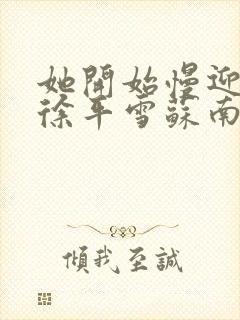 她開始慢迎
徐平雪蘇南
傾我至誠